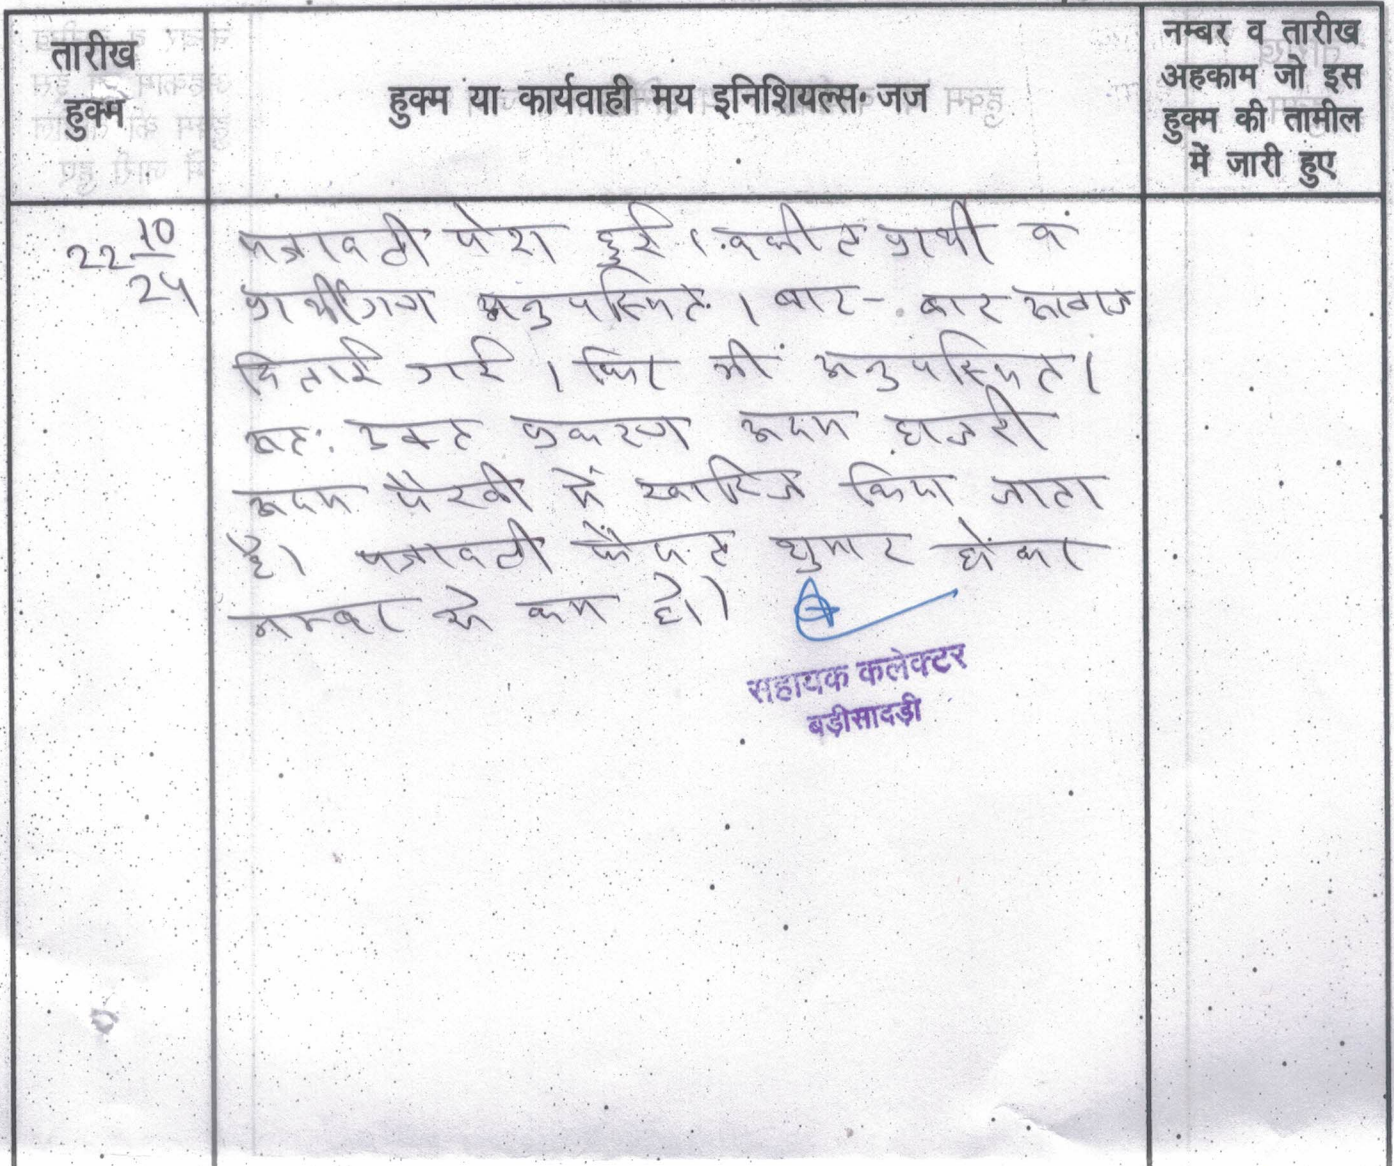 तारीख
हुक्म
हुक्म या कार्यवाही मय इनिशियल्स जज
नम्बर व तारीख
अहकाम जो इस
हुक्म की तामील
में जारी हुए
22 10/24
पत्रावली पेश हुई। वकील प्रार्थी व
प्रार्थीगण अनुपस्थित। बार-बार आवाज
दिलाई गई। फिर भी अनुपस्थित।
अतः उक्त प्रकरण अदम हाजरी
अदम पैरवी में खारिज किया जाता
है। पत्रावली फैसल शुमार होकर
नम्बर से कम हो।
सहायक कलेक्टर
बड़ीसादड़ी